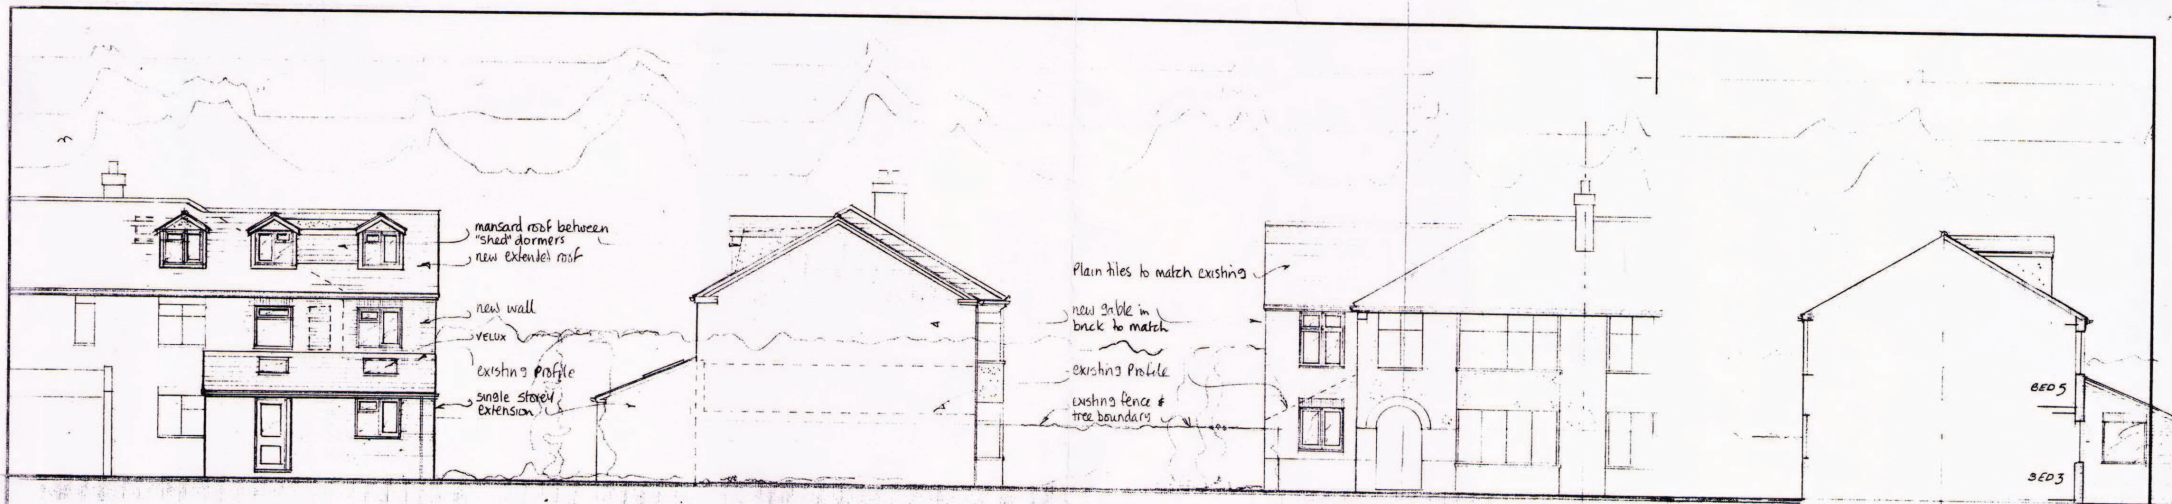 mansard roof between
"shed" dormers
new extended roof
new wall
VELUX
existing Profile
single storey
extension
Plain tiles to match existing
new gable in
brick to match
existing Profile
existing fence &
tree boundary
BED 5
BED 3